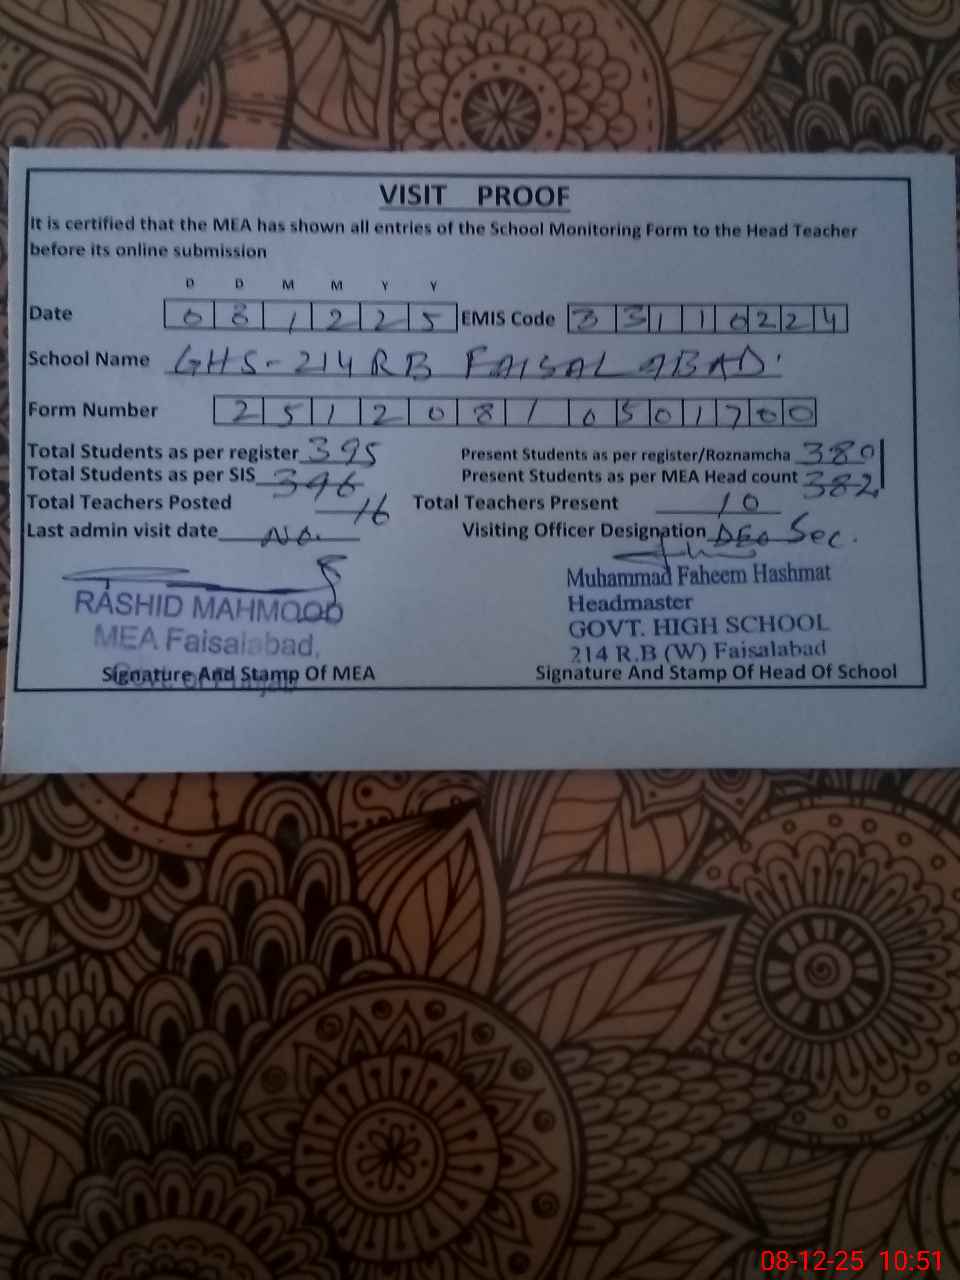 VISIT PROOF
It is certified that the MEA has shown all entries of the School Monitoring Form to the Head Teacher
before its online submission
D D M M Y Y
Date 0 8 1 2 2 5 EMIS Code 3 3 1 1 0 2 2 4
School Name GHS-214 RB FAISALABAD.
Form Number 2 5 1 2 0 8 1 0 5 0 1 7 0 0
Total Students as per register 395 Present Students as per register/Roznamcha 380
Total Students as per SIS 396 Present Students as per MEA Head count 382
Total Teachers Posted 16 Total Teachers Present 10
Last admin visit date No. Visiting Officer Designation DEO Sec.
RASHID MAHMOOD
MEA Faisalabad,
Signature And Stamp Of MEA
Muhammad Faheem Hashmat
Headmaster
GOVT. HIGH SCHOOL
214 R.B (W) Faisalabad
Signature And Stamp Of Head Of School
08-12-25 10:51